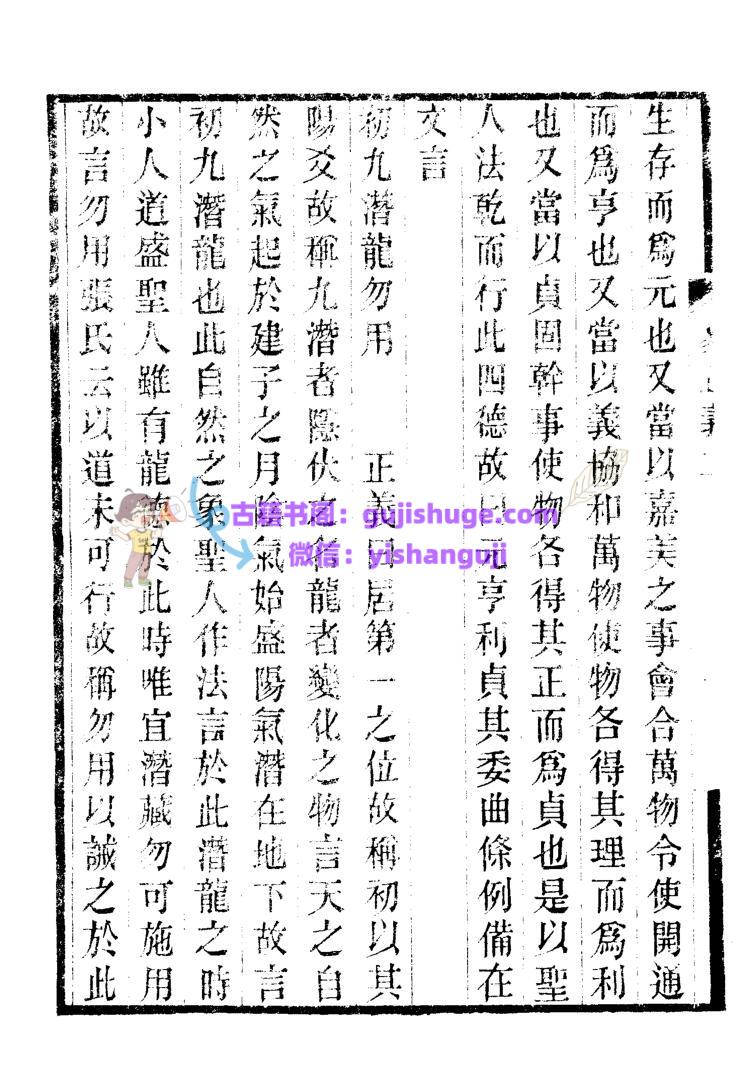 生存而爲元也又當以嘉美之事會合萬物令使開通
而爲亨也又當以義協和萬物使物各得其理而爲利
也又當以貞固幹事使物各得其正而爲貞也是以聖
人法乾而行此四德故曰元亨利貞其委曲條例備在
文言
初九潛龍勿用　正義曰居第一之位故稱初以其
陽爻故稱九潛者隱伏之名龍者變化之物言天之自
然之氣起於建子之月陰氣始盛陽氣潛在地下故言
初九潛龍也此自然之象聖人作法言於此潛龍之時
小人道盛聖人雖有龍德於此時唯宜潛藏勿可施用
故言勿用張氏云以道未可行故稱勿用以誡之於此
古籍书阁：gujishuge.com
微信：yishanguji